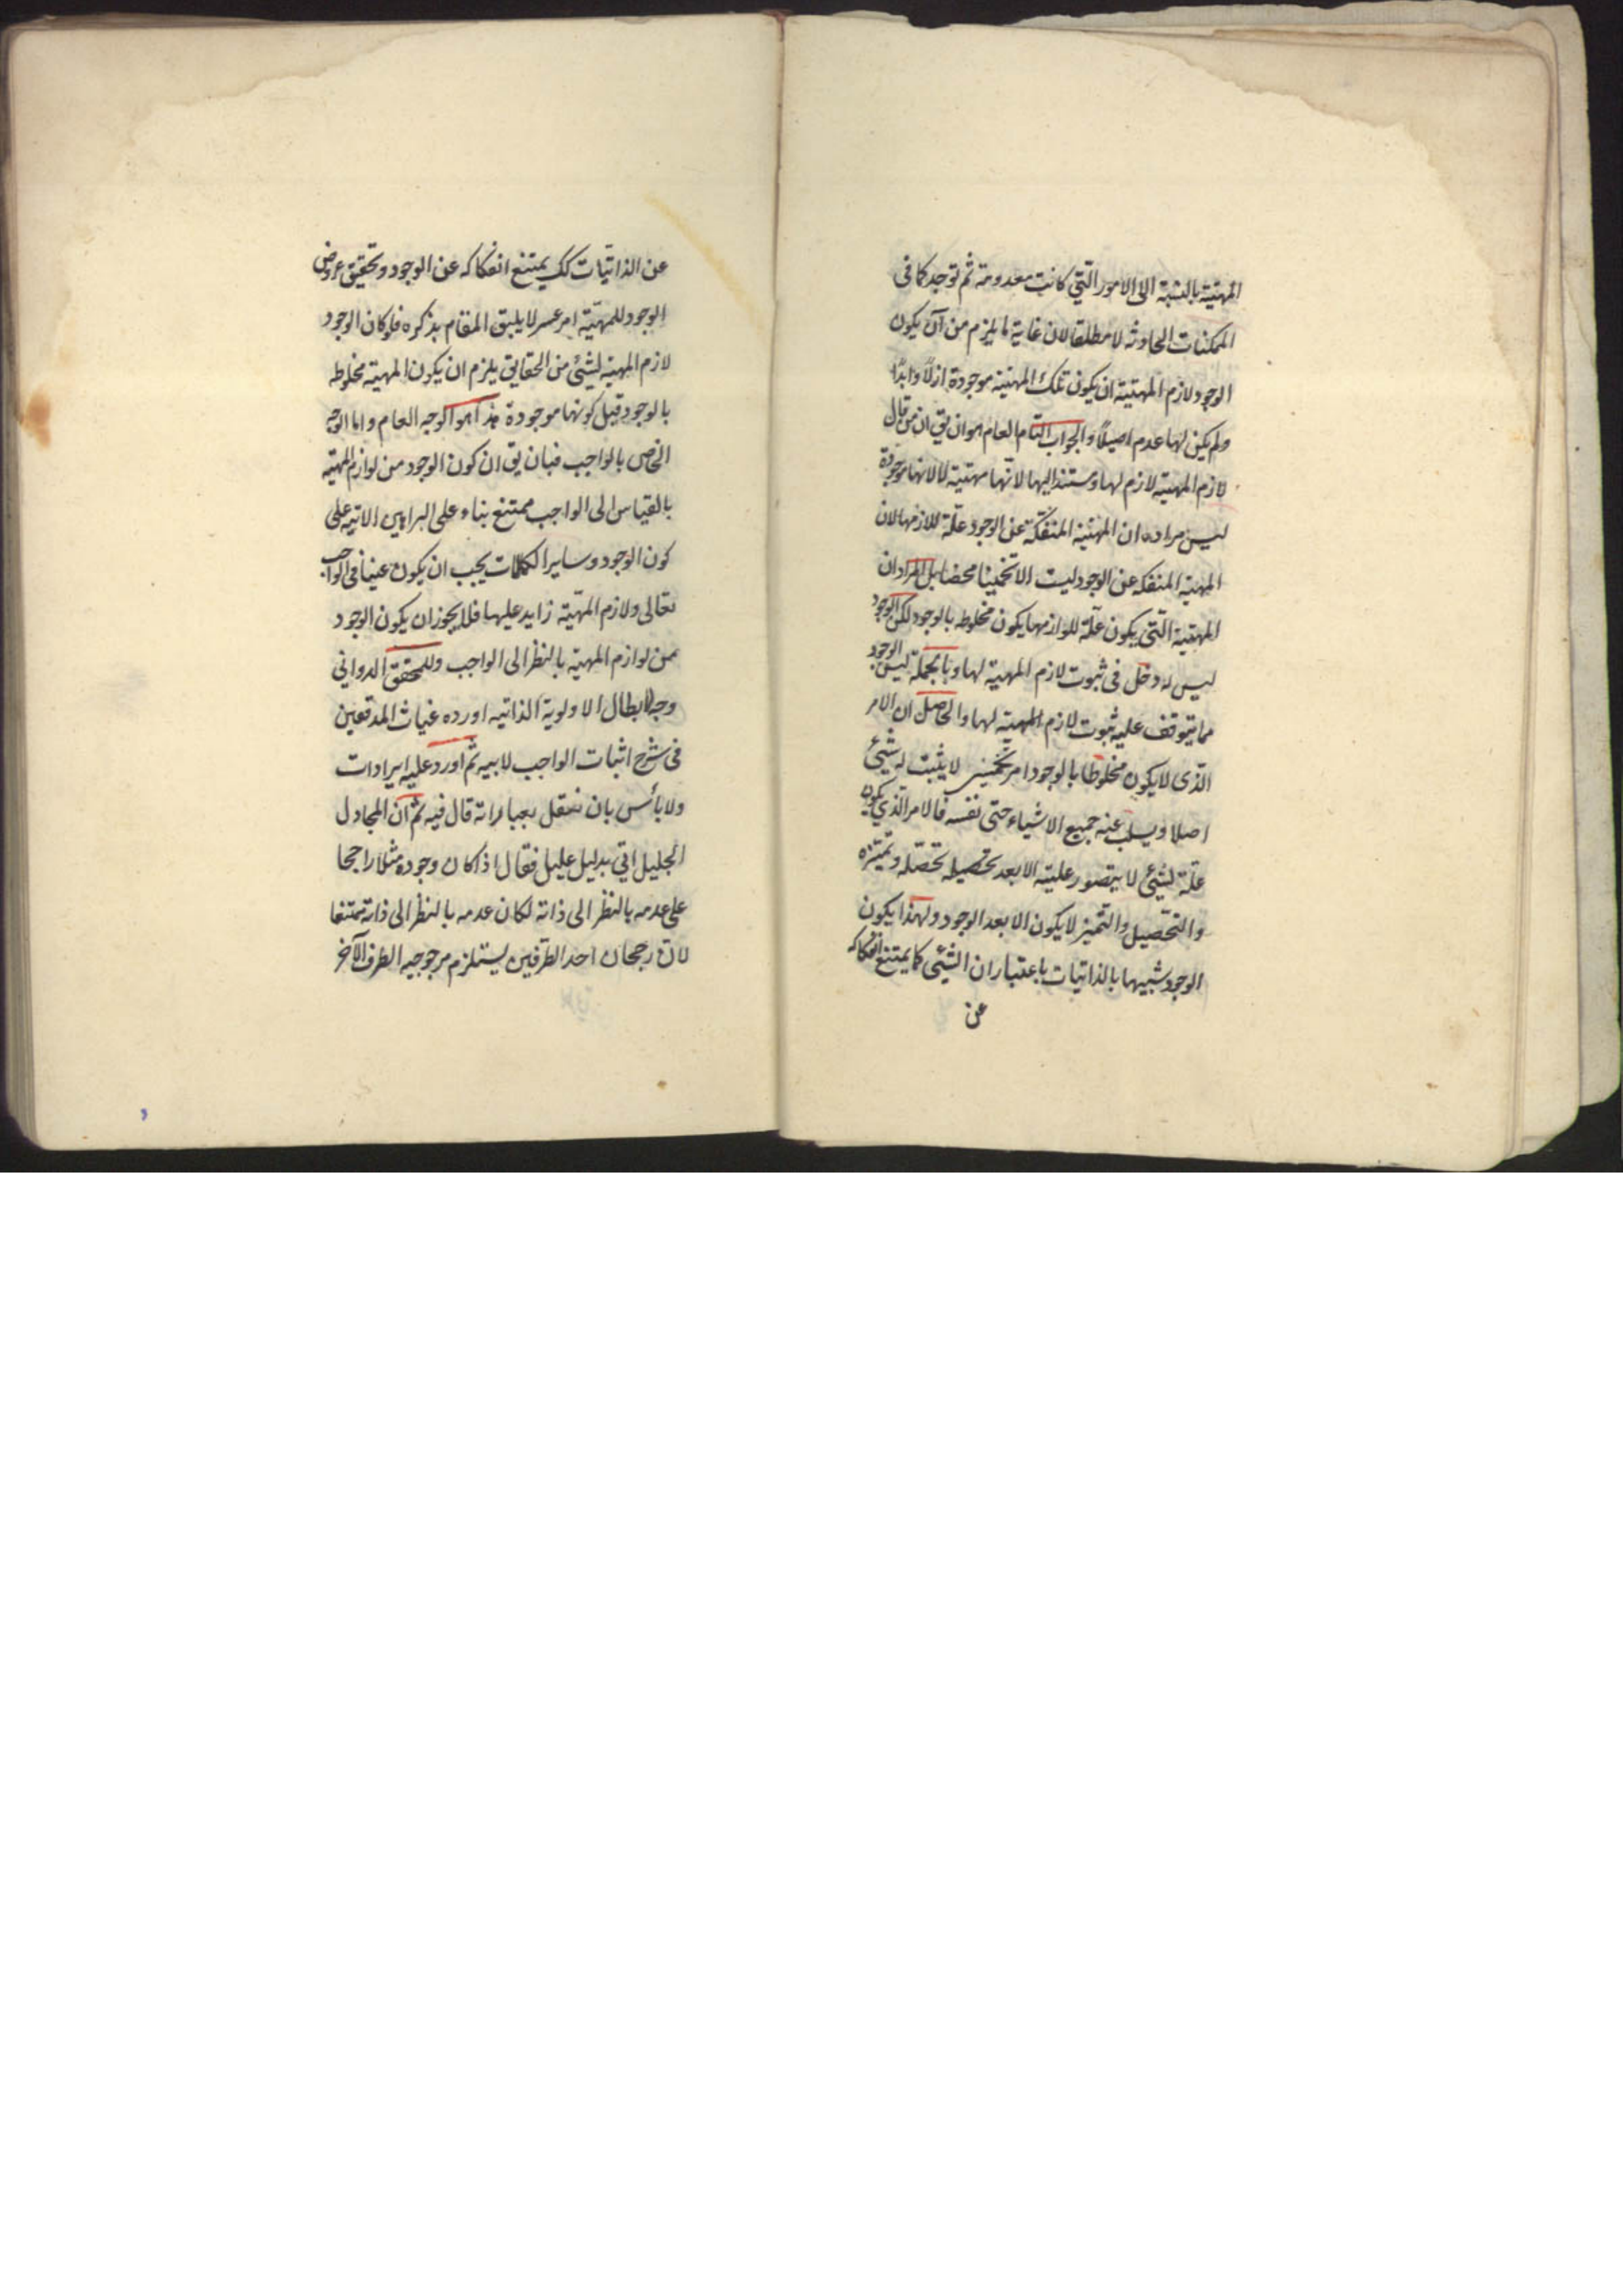 المهيّة بالنسبة الى الامور التّي كانت معدومة ثم توجد كما فى
الممكنات الحادثه لا مطلقا لان غاية ما يلزم من آن يكون
الوجود لازم المهيّة ان يكون تلك المهيّة موجودة ازلاً وابدًا
ولم يكن لها عدم اصلاً والجواب التام العام هو ان يق ان من قال
لازم المهيّة لازم لها ومستند اليها لانّها مهيّة لا لانها موجودة
ليس مراده ان المهيّة المنفكّة عن الوجود علّة للازمها لان
المهيّة المنفكه عن الوجود ليست الا تخمينا محضا بل المراد ان
المهيّة التّي يكون علّة للوازمها يكون مخلوطه بالوجود لكن الوجود
ليس له دخل فى ثبوت لازم المهيّة لها وبالجملة ليس الوجود
مما يتوقف عليه ثبوت لازم المهيّة لها والحاصل ان الامر
الذى لا يكون مخلوطا بالوجود امر تخمينى لا يثبت له شئ
اصلا ويسلب عنه جميع الاشياء حتى نفسه فالامر الذي يكون
علّة لشئ لا يتصور عليته الا بعد تحصيله تحصّله وتميّزه
والتحصيل والتميز لا يكون الا بعد الوجود ولهذا يكون
الوجود شبيها بالذاتيات باعتبار ان الشئ كما يمتنع انفكاكه
عن
عن الذاتيّات كك يمتنع انفكاكه عن الوجود وتحقيق عروض
الوجود للمهيّة امر عسر لا يليق المقام بذكره فلو كان الوجود
لازم المهيّة لشئ من الحقايق يلزم ان يكون المهيّة مخلوطه
بالوجود قبل كونها موجودة هذا هو الوجه العام واما الوجه
الخاص بالواجب فبان يق ان كون الوجود من لوازم المهيّه
بالقياس الى الواجب ممتنع بناء على البراهين الاتيه على
كون الوجود وساير الكمالات يجب ان يكون عينا فى الواجب
تعالى ولازم المهيّة زايد عليها فلا يجوز ان يكون الوجود
من لوازم المهيّة بالنظر الى الواجب وللمحقق الدواني
وجه لابطال الاولوية الذاتيه اورده غياث المدققين
فى شرح اثبات الواجب لابيه ثم اورد عليه ايرادات
ولا بأس بان ننقل بعباراته قال فيه ثم ان المجادل
الجليل اتي بدليل عليل فقال اذا كان وجوده مثلا راجحا
على عدمه بالنظر الى ذاته لكان عدمه بالنظر الى ذاته ممتنعا
لان رجحان احد الطرفين يستلزم مرجوجيه الطرف الآخر